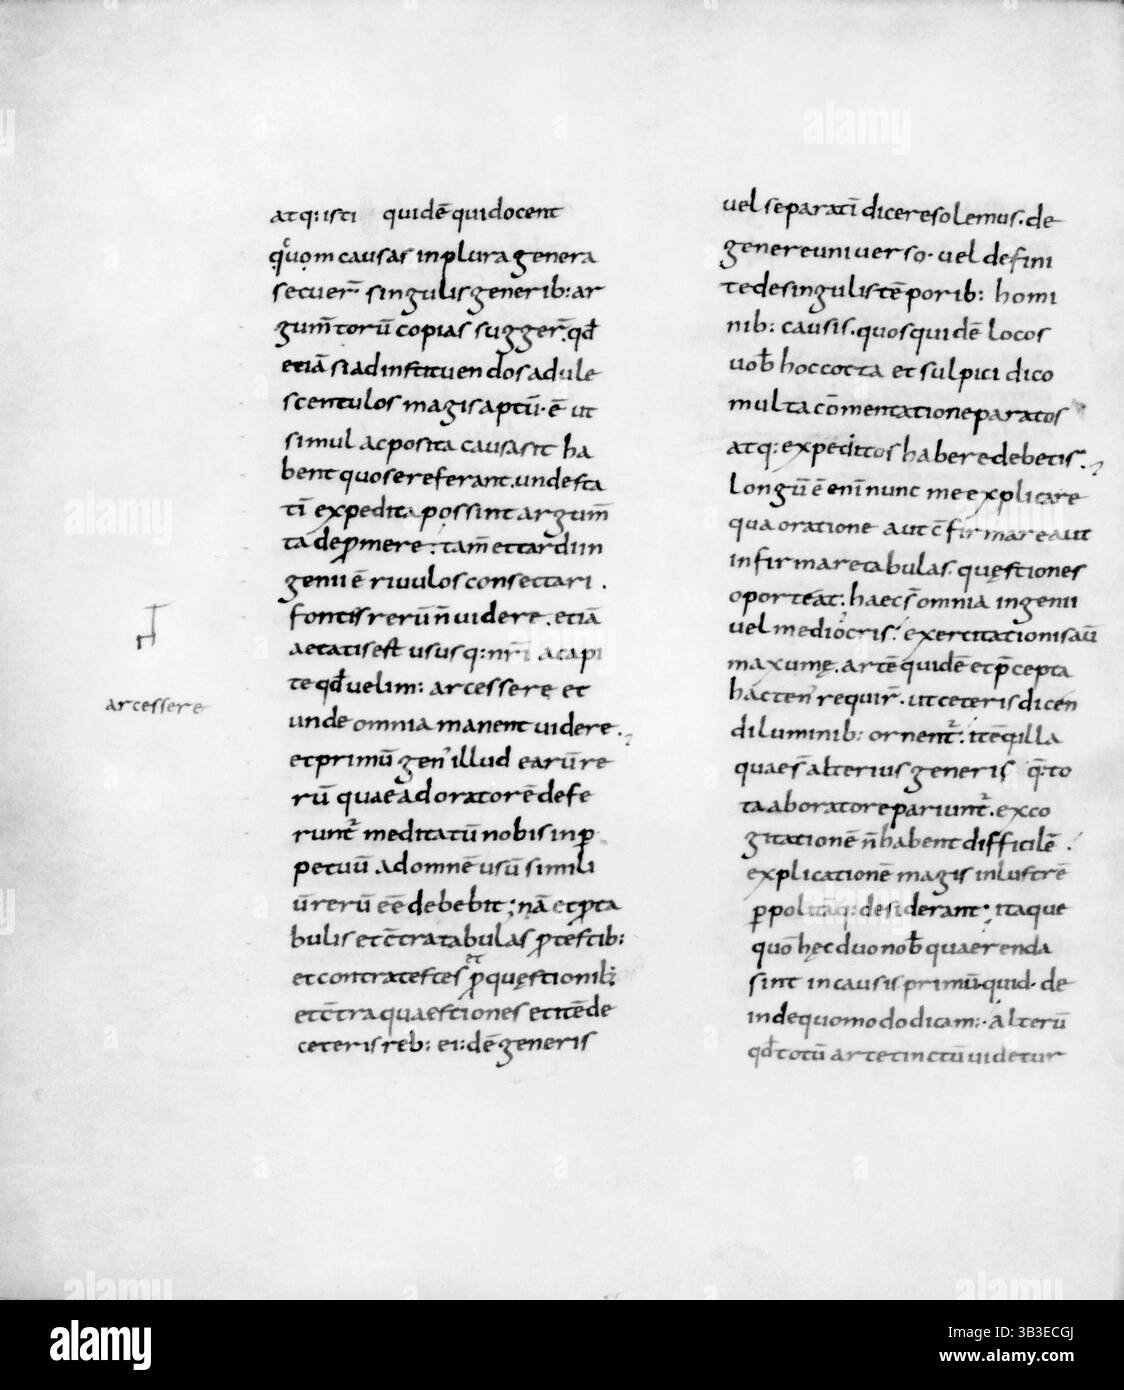 atq: isti quidē qui docent
quom causas in plura genera
secuer̄ singulis generib: ar
gum̄torū copias sugger̄. qđ
etiā si ad instituendos adule
scentulos magis aptū. ē ut
simul ac posita causa sit ha
bent quo se referant. unde sta
tī expedita possint argum̄
ta depromere. tam̄ et tardi in
genii ē rivulos consectari.
fontis rerū n̄ videre. etiā
aetatis est ususq: nr̄i a capi
te qđ velim: arcessere et
unde omnia manent videre.
arcessere
et primū gen' illud earū re
rū quae ad oratorē defe
runt̄ meditatū nobis in p̄
petuū. ad omnē usū simili
ū rerū eē debebit; nā et p̱ ta
bulis et c̄tra tabulas p̱ testib:
et contra testes et p̱ quęstionib:
et c̄tra quaestiones et itē de
ceteris reb: ei: dē generis
vel separatī dicere solemus. de
genere universo. vel defini
te de singulis tēporib: homi
nib: causis. quos quidē locos
vob̄ hoc cotta et sulpici dico
multa cōmentatione paratos
atq: expeditos habere debetis.
Longū ē enī nunc me explicare
qua oratione aut c̄firmare aut
infirmare tabulas. quęstiones
oporteat: haec s̄ omnia ingenii
vel mediocris: exercitationis aū
maxumę. artē quidē et p̄cepta
hacten' requir̄. ut ceteris dicen
di luminib: ornent̄. itēq illa
quae s̄ alterius generis q̄: to
ta ab oratore pariunt̄. exco
gitationē n̄ habent difficilē.
explicationē magis inlustrē
p̱politāq: desiderant: itaque
quō hęc duo nob̄ quaerenda
sint in causis primū. quid. de
inde quomodo dicam:. alterū
qđ totū arte tinctū videtur
alamy
Image ID: 3B3ECGJ
www.alamy.com